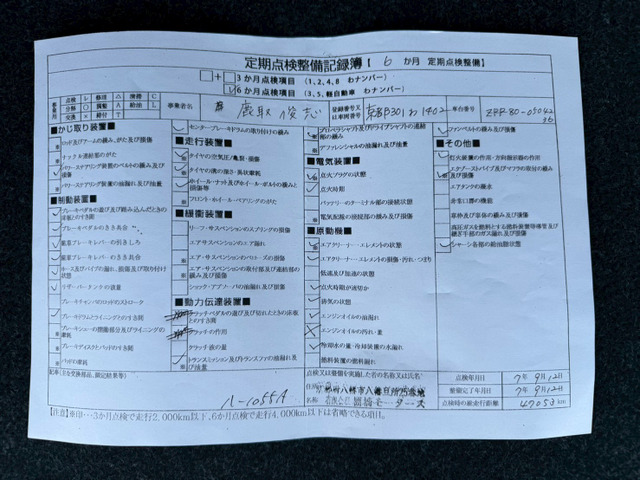 定期点検整備記録簿【 6 か月 定期点検整備】
3か月点検項目 (1、2、4、8 わナンバー)
6か月点検項目 (3、5、軽自動車 わナンバー)
点検 レ 修理 △ 清掃 C
分解 ○ 調整 A 給油 L
交換 × 締付 T
事業者名
登録番号又は車両番号
301わ1402
車台番号
■かじ取り装置■
ロッド及びアームの緩み、がた及び損傷
ナックル連結部のがた
パワーステアリング装置のベルトの緩み及び損傷
パワーステアリング装置の油漏れ及び油量
■制動装置■
ブレーキペダルの遊び及び踏み込んだときの床板とのすき間
ブレーキペダルのきき具合
駐車ブレーキレバーの引きしろ
駐車ブレーキレバーのきき具合
ホース及びパイプの漏れ、損傷及び取り付け状態
リザーバータンクの液量
ブレーキチャンバのロッドのストローク
ブレーキドラムとライニングとのすき間
ブレーキシューの摺動部分及びライニングの摩耗
ブレーキディスクとパッドのすき間
パッドの摩耗
センターブレーキドラムの取り付けの緩み
■走行装置■
タイヤの空気圧/亀裂・損傷
タイヤの溝の深さ・異状摩耗
ホイール・ナット及びホイール・ボルトの緩みと損傷等
フロント・ホイール・ベアリングのがた
■緩衝装置■
リーフ・サスペンションのスプリングの損傷
エア・サスペンションのエア漏れ
エア・サスペンションのベローズの損傷
エア・サスペンションの取付部及び連結部の緩み及び損傷
ショック・アブソーバの油漏れ及び損傷
■動力伝達装置■
クラッチペダルの遊び及び切れたときの床板とのすき間
クラッチの作用
クラッチ液の量
トランスミッション及びトランスファの油漏れ及び油量
プロペラシャフト及びドライブシャフトの連結部の緩み
デファレンシャルの油漏れ及び油量
■電気装置■
点火プラグの状態
点火時期
バッテリーのターミナル部の接続状態
電気配線の接続部の緩み及び損傷
■原動機■
エアクリーナー・エレメントの状態
エアクリーナー・エレメントの損傷・汚れ・つまり
低速及び加速の状態
排気の状態
エンジンオイルの油漏れ
エンジンオイルの汚れ・量
冷却水の量・冷却装置の水漏れ
燃料装置の燃料漏れ
ファンベルトの緩み及び損傷
■その他■
灯火装置の作用・方向指示器の作用
エクゾーストパイプ及びマフラの取付の緩み及び損傷
エアタンクの凝水
非常口扉の機能
車枠及び車体の緩み及び損傷
シャーシ各部の給油脂状態
記事(主な交換部品、測定結果等)
ハ-1055A
点検又は整備を実施した者の名称又は氏名
住所
名称
点検年月日 7年9月12日
整備完了年月日 7年9月12日
点検時の総走行距離 47053 km
【注意】※印…3か月点検で走行2、000km以下、6か月点検で走行4、000km以下は省略できる項目。